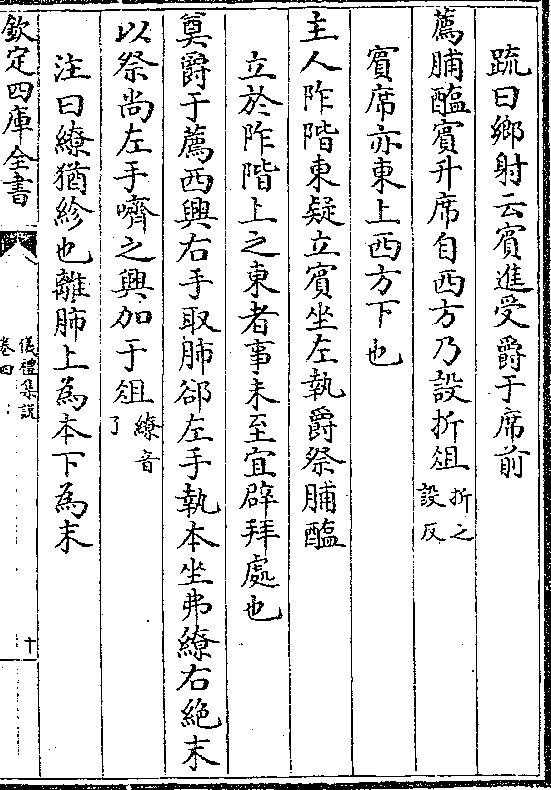 疏曰鄉射云賓進受爵于席前
薦脯醢賓升席自西方乃設折俎折之設反
賓席亦東上西方下也
主人阼階東疑立賓坐左執爵祭脯醢
立於阼階上之東者事未至宜辟拜處也
奠爵于薦西興右手取肺郤左手執本坐弗繚右絶末
以祭尚左手嚌之興加于俎繚音了
注曰繚猶紾也離肺上為本下為末
欽定四庫全書
儀禮集説
卷四
十